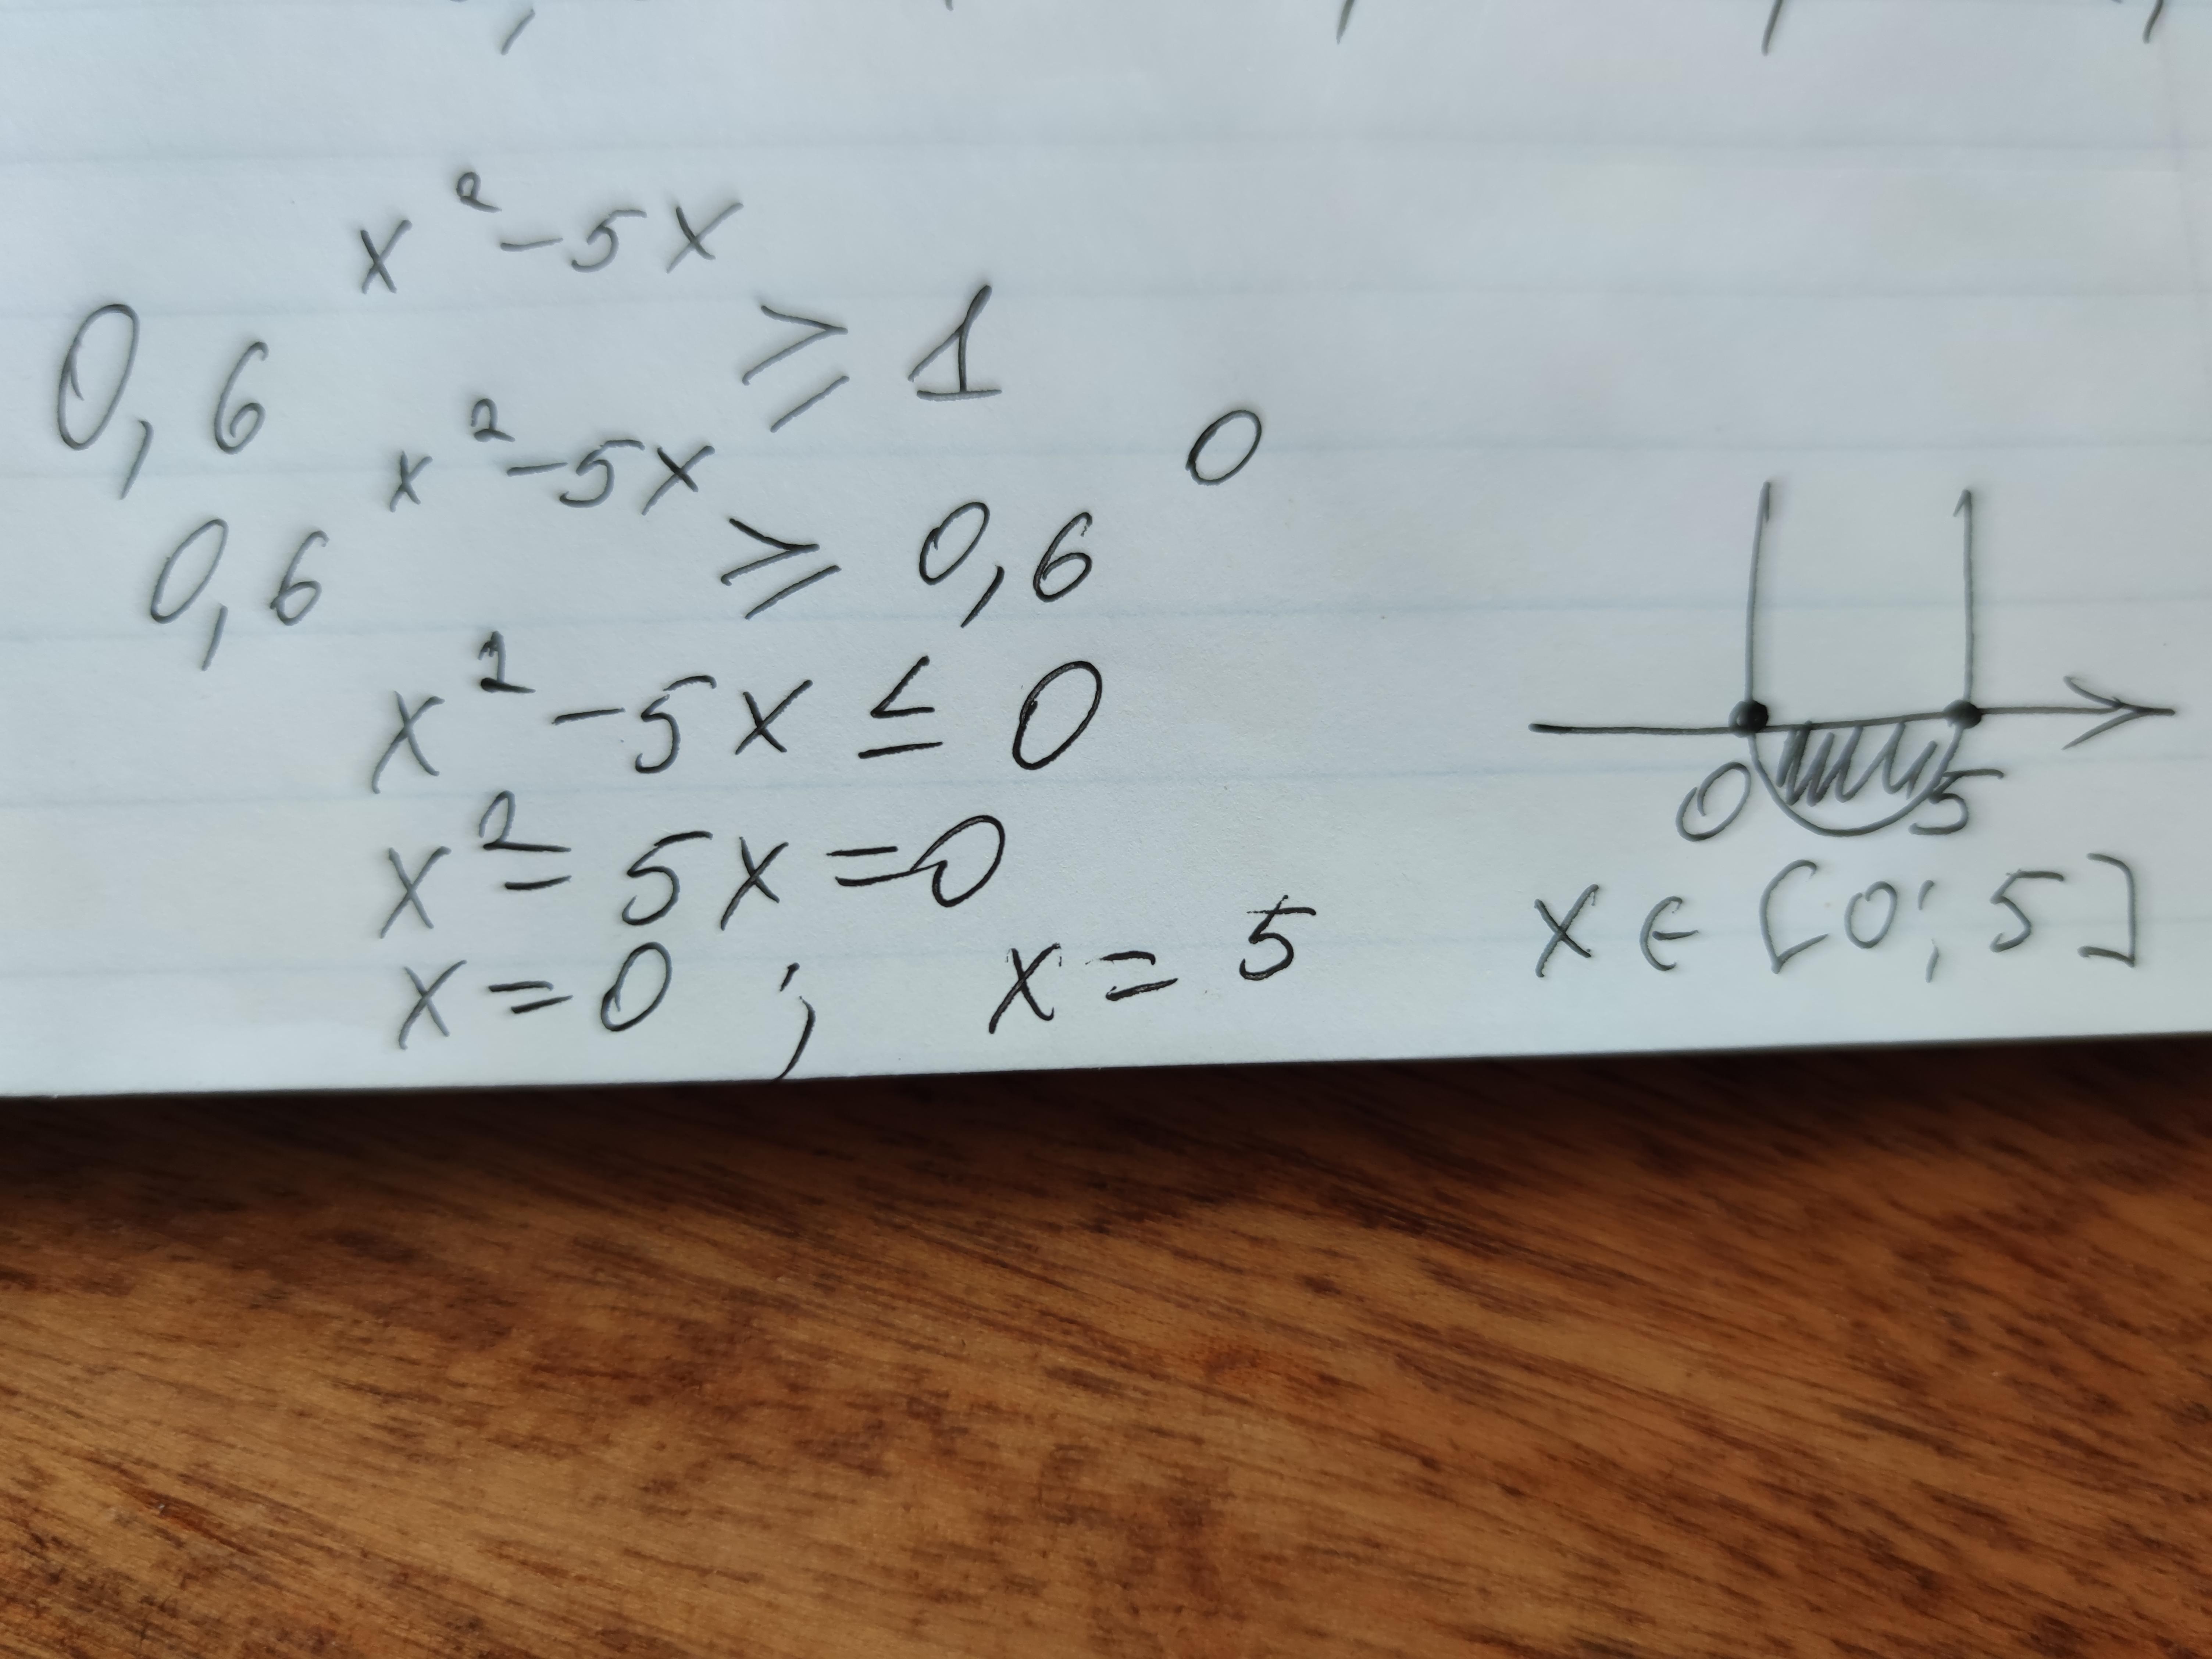 0,6^(x²-5x) ≥ 1
0,6^(x²-5x) ≥ 0,6^0
x²-5x ≤ 0
x²-5x=0
x=0 ; x=5
0 5
x ∈ [0; 5]